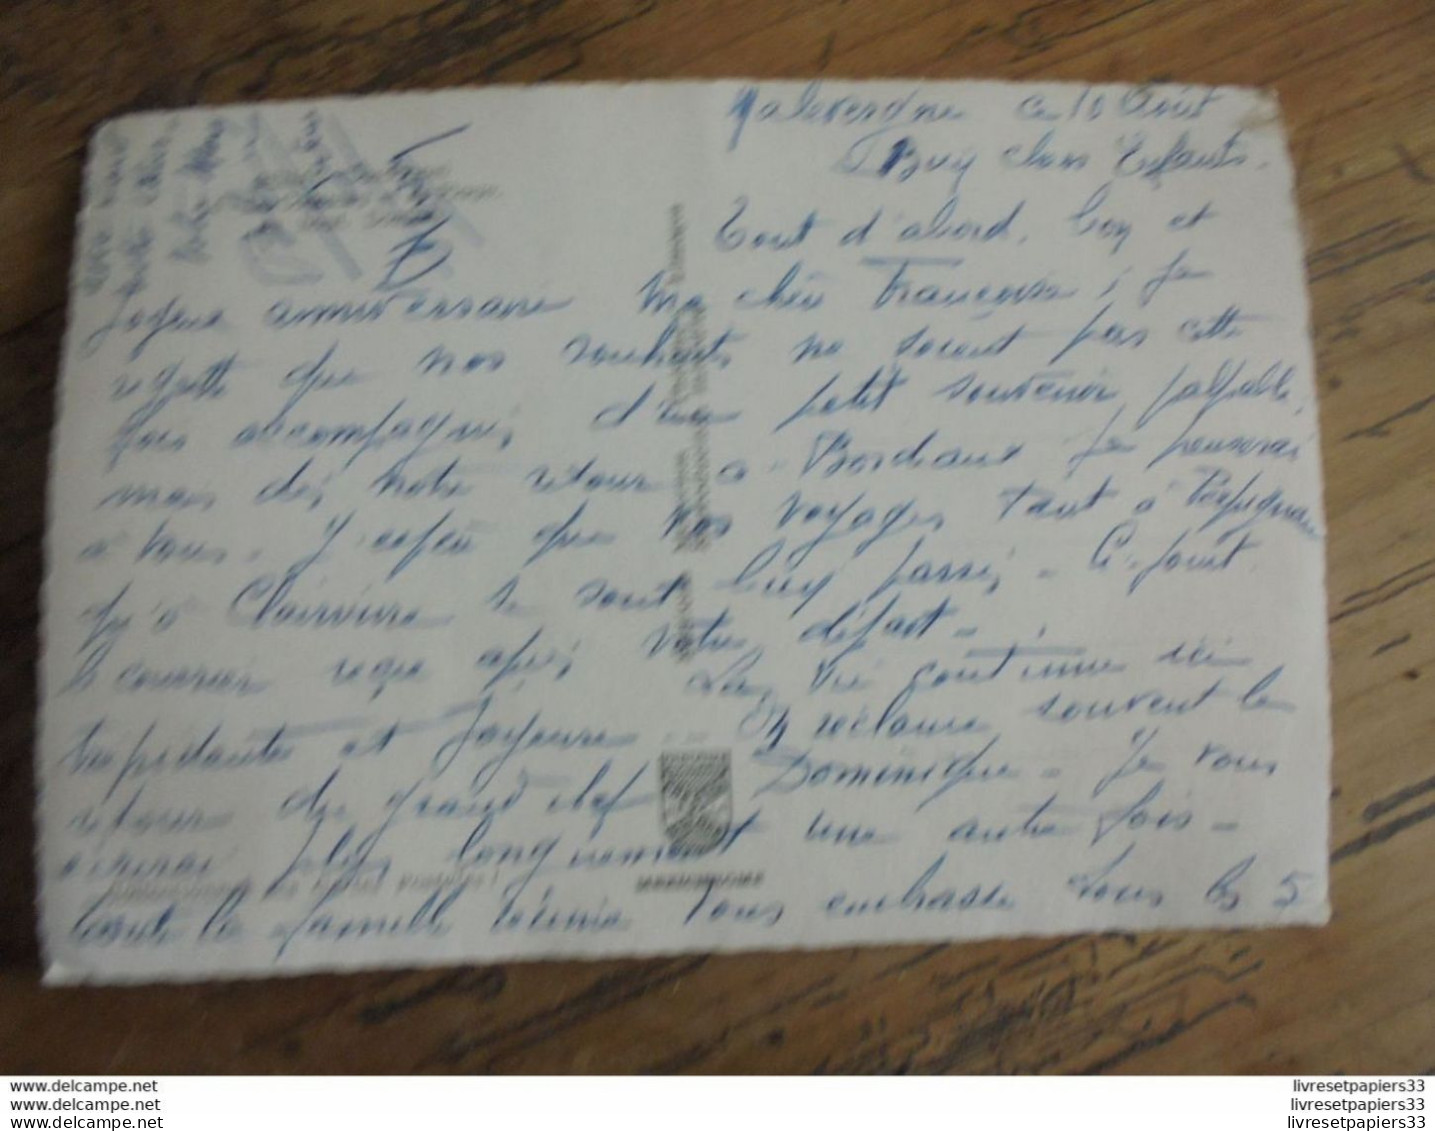 Malevergne ce 10 Août
Bien chers Enfants.
Tout d'abord, bon et
joyeux anniversaire Ma chère Françoise, je
regrette que nos souhaits ne soient pas cette
fois accompagnés d'un petit souvenir palpable,
mais dès notre retour à Bordeaux je penserai
à vous. J'espère que vos voyages tant à Perpignan
qu'à Clairvivre se sont bien passés - Ci-joint
le courrier reçu après votre départ -
La vie continue ici
trépidante et joyeuse On réclame souvent le
retour du grand chef Dominique - Je vous
écrirai plus longuement une autre fois -
toute la famille réunie vous embrasse tous les 5
www.delcampe.net
www.delcampe.net
www.delcampe.net
livresetpapiers33
livresetpapiers33
livresetpapiers33